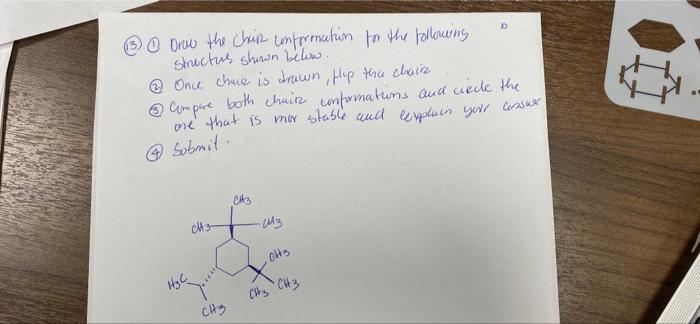 13. ① Draw the chair conformation for the following
structure shown below.
② Once chair is drawn, flip the chair
③ Compare both chair conformations and circle the
one that is mor stable and explain your answer
④ Submit.
CH3
CH3
CH3
CH3
H3C
CH3
CH3
CH3